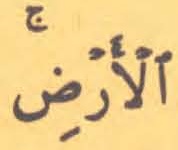 ٱلْأَرْضِۚ